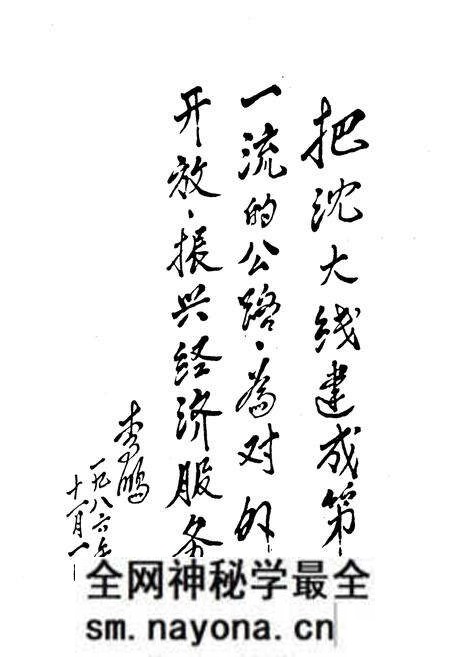 把沈大线建成第
一流的公路、为对外
开放、振兴经济服务
李鹏
一九八六年
十一月一
全网神秘学最全
sm.nayona.cn